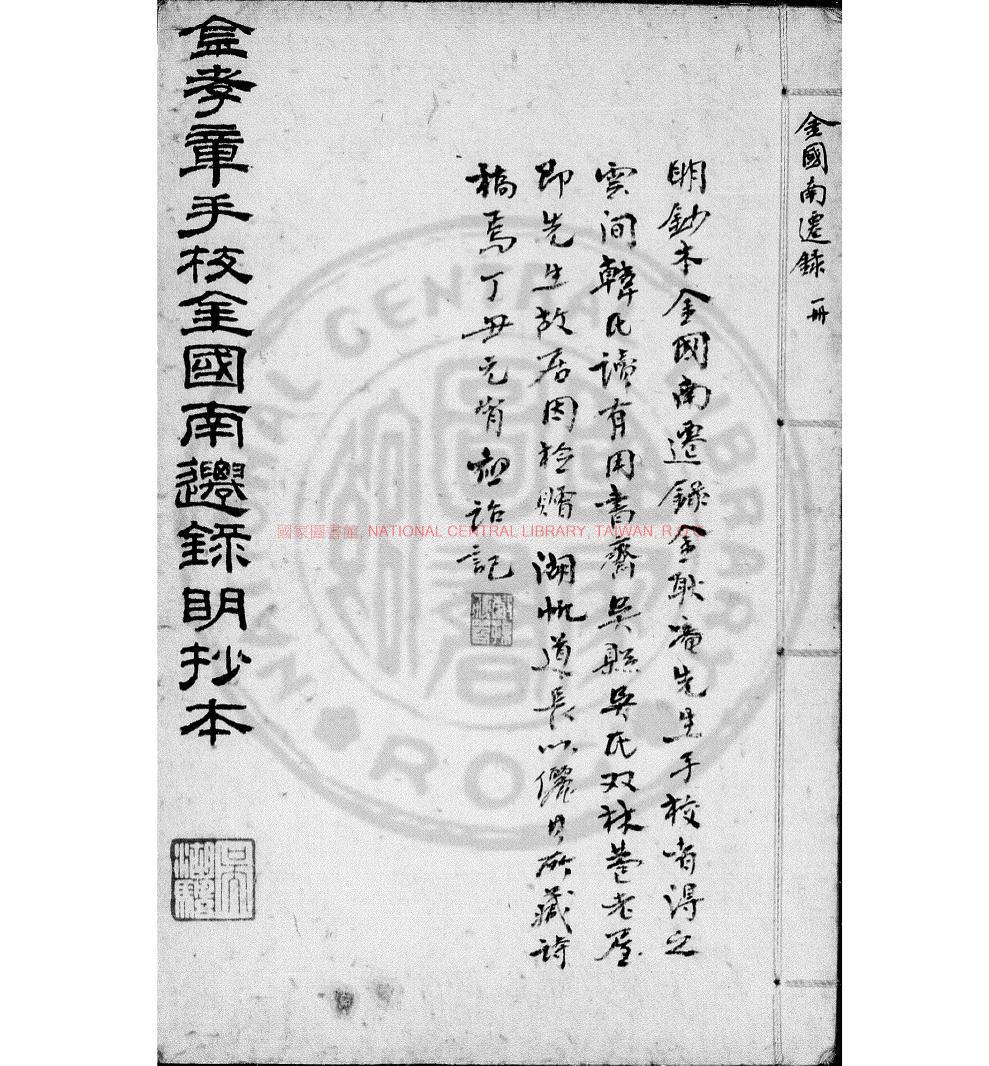 金國南遷錄 一冊
明鈔本金國南遷錄金耿庵先生手校者得之
雲間韓氏讀有用書齋吳縣吳氏双林巷老屋
即先生故居因檢贈 湖帆道長以儷其所藏詩
稿焉丁丑元宵詒記
金孝章手校金國南遷錄明抄本
吳湖颿
國家圖書館, NATIONAL CENTRAL LIBRARY, TAIWAN, R.O.C.